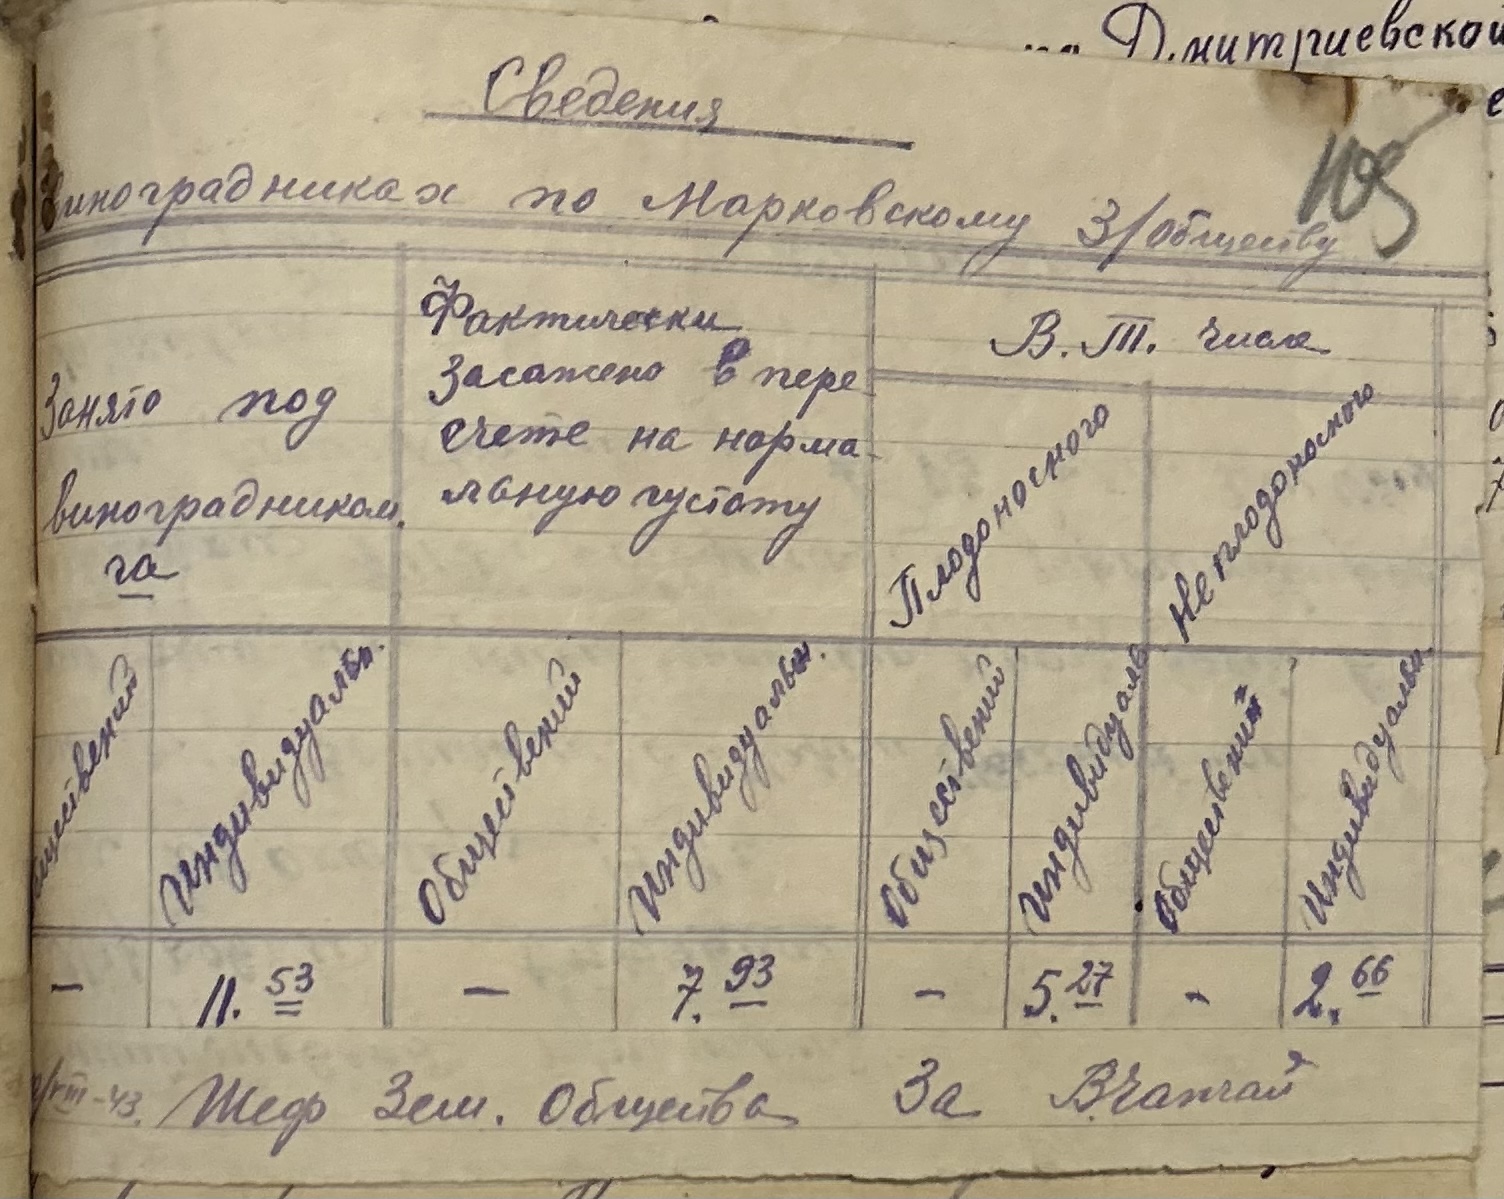 на Дмитриевской
Сведения
105
виноградниках по Марковскому З/обществу
Занято под
виноградником.
га
Фактически
Засажено в пере
счете на норма-
льную густоту
В. т. числе
Плодоносного
Неплодоносного
бщественний
Индивидуальн.
Общественний
Индивидуальн.
Общественний
Индивидуаль
Общественний
Индивидуальн.
- 11.53 - 7.93 - 5.27 - 2.66
VIII-43. Шеф Зем. Общества За В.Чапчай